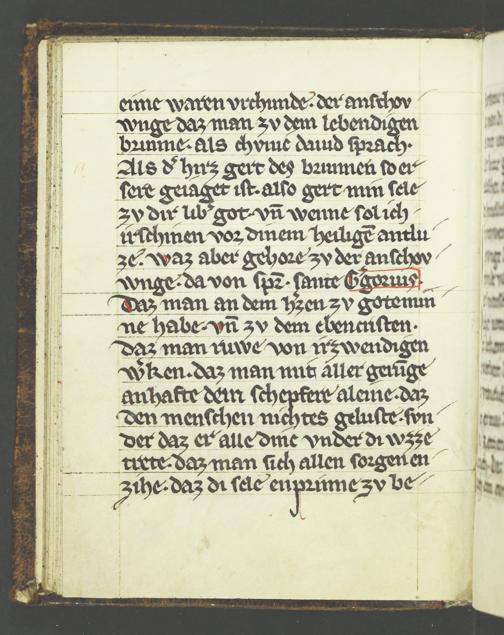 eime waren vrchunde· der anschov
wnge daz man zv dem lebendigen
brunne· als chvnic dauid sprach·
Als d̾ hirz gert des brunnen so er
sere geiaget ist· also gert min sele
zv dir lib̾ got· vn̄ wenne sol ich
irschinen vor dinem heiligē antlu
ze· waz aber gehore zv der anschov
wnge· da von spr̄· sante G̾gorius
Daz man an dem h̾zen zv gote min
ne habe· vn̄ zv dem ebencristen·
Daz man rvwe von vzwendigen
w̾ken· daz man mit aller gerūge
anhafte dem schepfere aleine· daz
den menschen nichtes geluste· svn
der daz er alle dinc vnder di wzze
trete· daz man sich allen sorgen en
zihe· daz di sele enprinne zv be